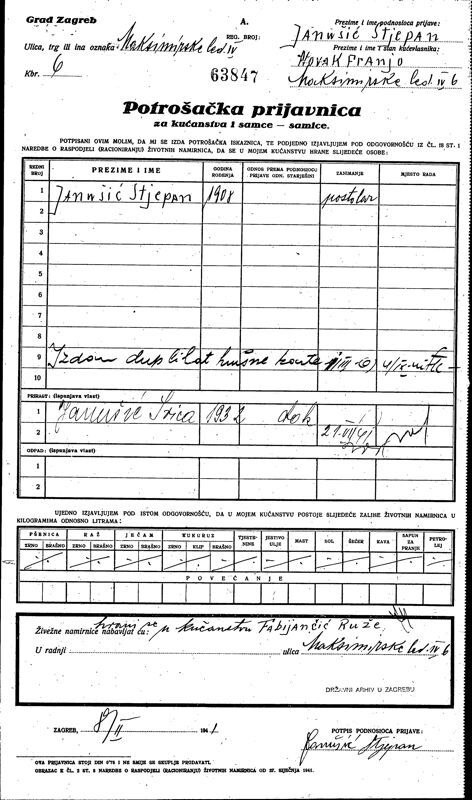 Grad Zagreb
A.
REG. BROJ:
63847
Prezime i ime podnosioca prijave:
Janušić Stjepan
Ulica, trg ili ina oznaka: Maksimirske led. IV
Kbr. 6
Prezime i ime i stan kućevlasnika:
Novak Franjo
Maksimirske led. IV 6
Potrošačka prijavnica
za kućanstva i samce — samice.
POTPISANI OVIM MOLIM, DA MI SE IZDA POTROŠAČKA ISKAZNICA, TE PODJEDNO IZJAVLJUJEM POD ODGOVORNOŠĆU IZ ČL. 18 ST. 1
NAREDBE O RASPODJELI (RACIONIRANJU) ŽIVOTNIH NAMIRNICA, DA SE U MOJEM KUĆANSTVU HRANE SLIJEDEĆE OSOBE:
REDNI BROJ PREZIME I IME GODINA ROĐENJA ODNOS PREMA PODNOSIOCU PRIJAVE ODN. STARJEŠINI ZANIMANJE MJESTO RADA
1 Janušić Stjepan 1908 postolar
2
3
4
5
6
7
8
9 Izdan duplikat krušne karte
10
PRIRAST: (ispunjava vlast)
1 Janušić Ivica 1932 dok
2 21.VII 41
OTPAD: (ispunjava vlast)
1
2
UJEDNO IZJAVLJUJEM POD ISTOM ODGOVORNOŠĆU, DA U MOJEM KUĆANSTVU POSTOJE SLIJEDEĆE ZALIHE ŽIVOTNIH NAMIRNICA U
KILOGRAMIMA ODNOSNO LITRAMA:
PŠENICA RAŽ JEČAM KUKURUZ TJESTENINE JESTIVO ULJE MAST SOL ŠEĆER KAVA SAPUN ZA PRANJE PETROLEJ
ZRNO BRAŠNO ZRNO BRAŠNO ZRNO BRAŠNO ZRNO KLIP BRAŠNO
POVEĆANJE
hrani se u kućanstvu Fabijančić Ruže
Živežne namirnice nabavljat ću:
U radnji ulica Maksimirske led. IV 6
DRŽAVNI ARHIV U ZAGREBU
ZAGREB, 8/II 1941
POTPIS PODNOSIOCA PRIJAVE:
Janušić Stjepan
OVA PRIJAVNICA STOJI DIN 0'75 I NE SMIJE SE SKUPLJE PRODAVATI.
OBRAZAC K ČL. 2 ST. 2 NAREDBE O RASPODJELI (RACIONIRANJU) ŽIVOTNIH NAMIRNICA OD 27. SIJEČNJA 1941.